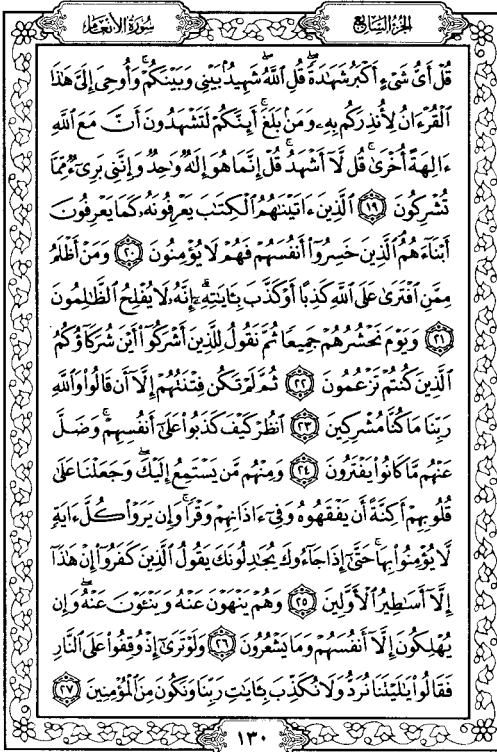 سُورَةُ الأَنْعَام
الجُزْءُ السَّابِعُ
قُلْ أَىُّ شَىْءٍ أَكْبَرُ شَهَٰدَةً ۖ قُلِ ٱللَّهُ ۖ شَهِيدٌۢ بَيْنِى وَبَيْنَكُمْ ۚ وَأُوحِىَ إِلَىَّ هَٰذَا
ٱلْقُرْءَانُ لِأُنذِرَكُم بِهِۦ وَمَنۢ بَلَغَ ۚ أَئِنَّكُمْ لَتَشْهَدُونَ أَنَّ مَعَ ٱللَّهِ
ءَالِهَةً أُخْرَىٰ ۚ قُل لَّآ أَشْهَدُ ۚ قُلْ إِنَّمَا هُوَ إِلَٰهٌ وَٰحِدٌ وَإِنَّنِى بَرِىٓءٌ مِّمَّا
تُشْرِكُونَ ١٩ ٱلَّذِينَ ءَاتَيْنَٰهُمُ ٱلْكِتَٰبَ يَعْرِفُونَهُۥ كَمَا يَعْرِفُونَ
أَبْنَآءَهُمُ ٱلَّذِينَ خَسِرُوٓا۟ أَنفُسَهُمْ فَهُمْ لَا يُؤْمِنُونَ ٢٠ وَمَنْ أَظْلَمُ
مِمَّنِ ٱفْتَرَىٰ عَلَى ٱللَّهِ كَذِبًا أَوْ كَذَّبَ بِـَٔايَٰتِهِۦٓ ۗ إِنَّهُۥ لَا يُفْلِحُ ٱلظَّٰلِمُونَ
٢١ وَيَوْمَ نَحْشُرُهُمْ جَمِيعًا ثُمَّ نَقُولُ لِلَّذِينَ أَشْرَكُوٓا۟ أَيْنَ شُرَكَآؤُكُمُ
ٱلَّذِينَ كُنتُمْ تَزْعُمُونَ ٢٢ ثُمَّ لَمْ تَكُن فِتْنَتُهُمْ إِلَّآ أَن قَالُوا۟ وَٱللَّهِ
رَبِّنَا مَا كُنَّا مُشْرِكِينَ ٢٣ ٱنظُرْ كَيْفَ كَذَبُوا۟ عَلَىٰٓ أَنفُسِهِمْ ۚ وَضَلَّ
عَنْهُم مَّا كَانُوا۟ يَفْتَرُونَ ٢٤ وَمِنْهُم مَّن يَسْتَمِعُ إِلَيْكَ ۖ وَجَعَلْنَا عَلَىٰ
قُلُوبِهِمْ أَكِنَّةً أَن يَفْقَهُوهُ وَفِىٓ ءَاذَانِهِمْ وَقْرًا ۚ وَإِن يَرَوْا۟ كُلَّ ءَايَةٍ
لَّا يُؤْمِنُوا۟ بِهَا ۚ حَتَّىٰٓ إِذَا جَآءُوكَ يُجَٰدِلُونَكَ يَقُولُ ٱلَّذِينَ كَفَرُوٓا۟ إِنْ هَٰذَآ
إِلَّآ أَسَٰطِيرُ ٱلْأَوَّلِينَ ٢٥ وَهُمْ يَنْهَوْنَ عَنْهُ وَيَنْـَٔوْنَ عَنْهُ ۖ وَإِن
يُهْلِكُونَ إِلَّآ أَنفُسَهُمْ وَمَا يَشْعُرُونَ ٢٦ وَلَوْ تَرَىٰٓ إِذْ وُقِفُوا۟ عَلَى ٱلنَّارِ
فَقَالُوا۟ يَٰلَيْتَنَا نُرَدُّ وَلَا نُكَذِّبَ بِـَٔايَٰتِ رَبِّنَا وَنَكُونَ مِنَ ٱلْمُؤْمِنِينَ ٢٧
١٣٠